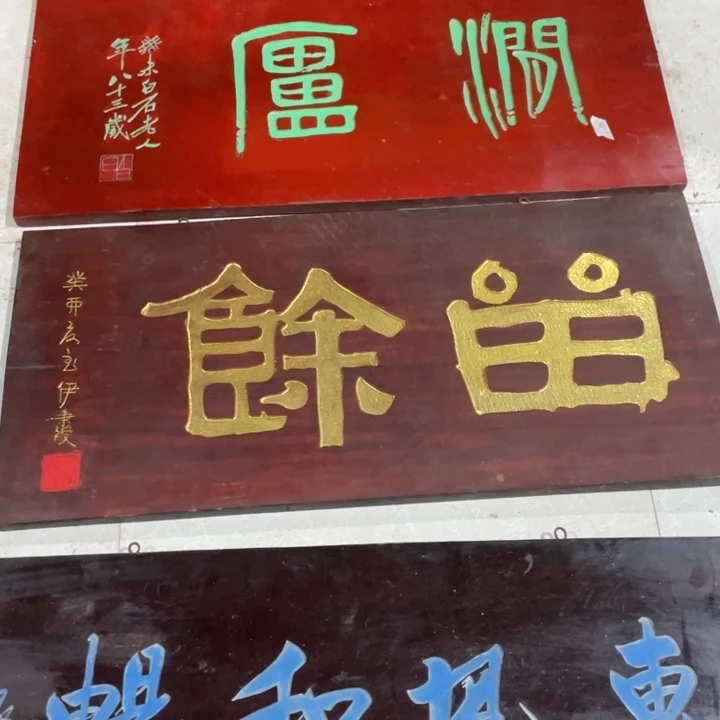 澗廬
癸未白石老人
年八十三歲
留餘
癸酉夏至伊秉綬
惠風和暢